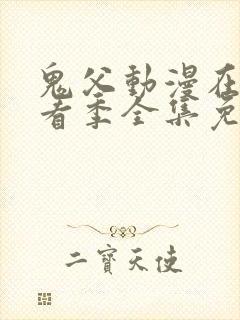 鬼父動漫在
看季全集免
二寶天使